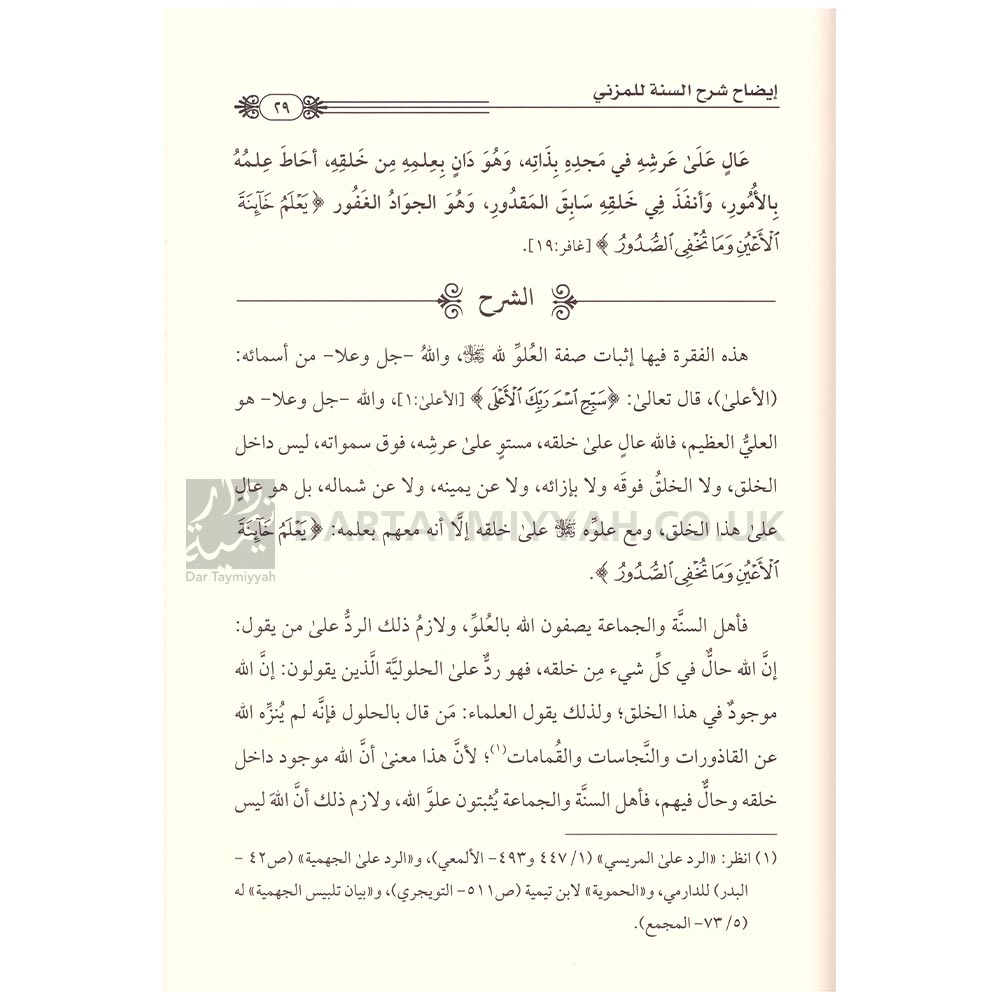 إيضاح شرح السنة للمزني
٢٩
عَالٍ عَلَىٰ عَرشِهِ في مَجدِهِ بِذَاتِه، وَهُوَ دَانٍ بِعِلمِهِ مِن خَلقِهِ، أحَاطَ عِلمُهُ
بِالأُمُورِ، وَأنفَذَ فِي خَلقِهِ سَابِقَ المَقدُورِ، وَهُوَ الجوَادُ الغَفُور ﴿ يَعۡلَمُ خَآئِنَةَ
ٱلۡأَعۡيُنِ وَمَا تُخۡفِي ٱلصُّدُورُ ﴾ [غافر:١٩].
الشرح
هذه الفقرة فيها إثبات صفة العُلوِّ لله ﷻ، واللهُ -جل وعلا- من أسمائه:
(الأعلىٰ)، قال تعالىٰ: ﴿سَبِّحِ ٱسۡمَ رَبِّكَ ٱلۡأَعۡلَى ﴾ [الأعلىٰ:١]، والله -جل وعلا- هو
العليُّ العظيم، فالله عالٍ علىٰ خلقه، مستوٍ علىٰ عرشِه، فوق سمواته، ليس داخل
الخلق، ولا الخلقُ فوقَه ولا بإزائه، ولا عن يمينه، ولا عن شماله، بل هو عالٍ
علىٰ هذا الخلق، ومع علوِّه ﷻ علىٰ خلقه إلَّا أنه معهم بعلمه: ﴿ يَعۡلَمُ خَآئِنَةَ
ٱلۡأَعۡيُنِ وَمَا تُخۡفِي ٱلصُّدُورُ ﴾.
فأهل السنَّة والجماعة يصفون الله بالعُلوِّ، ولازمُ ذلك الردُّ علىٰ من يقول:
إنَّ الله حالٌّ في كلِّ شيء مِن خلقه، فهو ردٌّ علىٰ الحلوليَّة الَّذين يقولون: إنَّ الله
موجودٌ في هذا الخلق؛ ولذلك يقول العلماء: مَن قال بالحلول فإنَّه لم يُنزِّه الله
عن القاذورات والنَّجاسات والقُمامات(١)؛ لأنَّ هذا معنىٰ أنَّ الله موجود داخل
خلقه وحالٌّ فيهم، فأهل السنَّة والجماعة يُثبتون علوَّ الله، ولازم ذلك أنَّ اللهَ ليس
(١) انظر: «الرد علىٰ المريسي» (١/ ٤٤٧ و٤٩٣- الألمعي)، و«الرد علىٰ الجهمية» (ص٤٢ -
البدر) للدارمي، و«الحموية» لابن تيمية (ص٥١١- التويجري)، و«بيان تلبيس الجهمية» له
(٥/ ٧٣- المجمع).
دار تيمية
Dar Taymiyyah
DARTAYMIYYAH.CO.UK